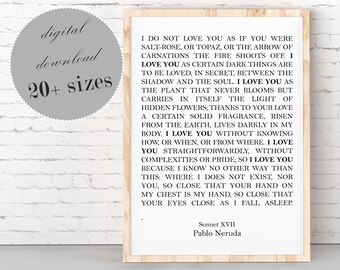 digital
download
20+ sizes
I DO NOT LOVE YOU AS IF YOU WERE
SALT-ROSE, OR TOPAZ, OR THE ARROW OF
CARNATIONS THE FIRE SHOOTS OFF. I
LOVE YOU AS CERTAIN DARK THINGS ARE
TO BE LOVED, IN SECRET, BETWEEN THE
SHADOW AND THE SOUL. I LOVE YOU AS
THE PLANT THAT NEVER BLOOMS BUT
CARRIES IN ITSELF THE LIGHT OF
HIDDEN FLOWERS; THANKS TO YOUR LOVE
A CERTAIN SOLID FRAGRANCE, RISEN
FROM THE EARTH, LIVES DARKLY IN MY
BODY. I LOVE YOU WITHOUT KNOWING
HOW, OR WHEN, OR FROM WHERE. I LOVE
YOU STRAIGHTFORWARDLY, WITHOUT
COMPLEXITIES OR PRIDE; SO I LOVE YOU
BECAUSE I KNOW NO OTHER WAY THAN
THIS: WHERE I DOES NOT EXIST, NOR
YOU, SO CLOSE THAT YOUR HAND ON
MY CHEST IS MY HAND, SO CLOSE THAT
YOUR EYES CLOSE AS I FALL ASLEEP.
Sonnet XVII
Pablo Neruda